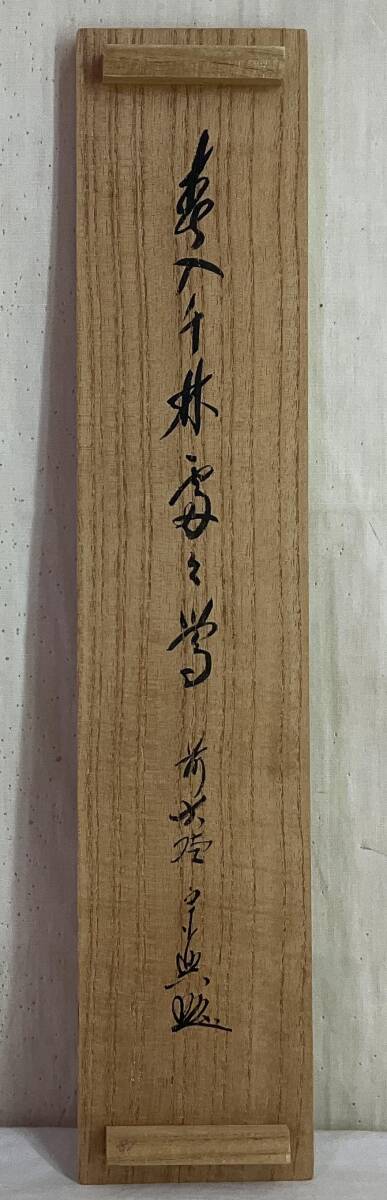 春入千林處々鶯 前大徳 宗典題